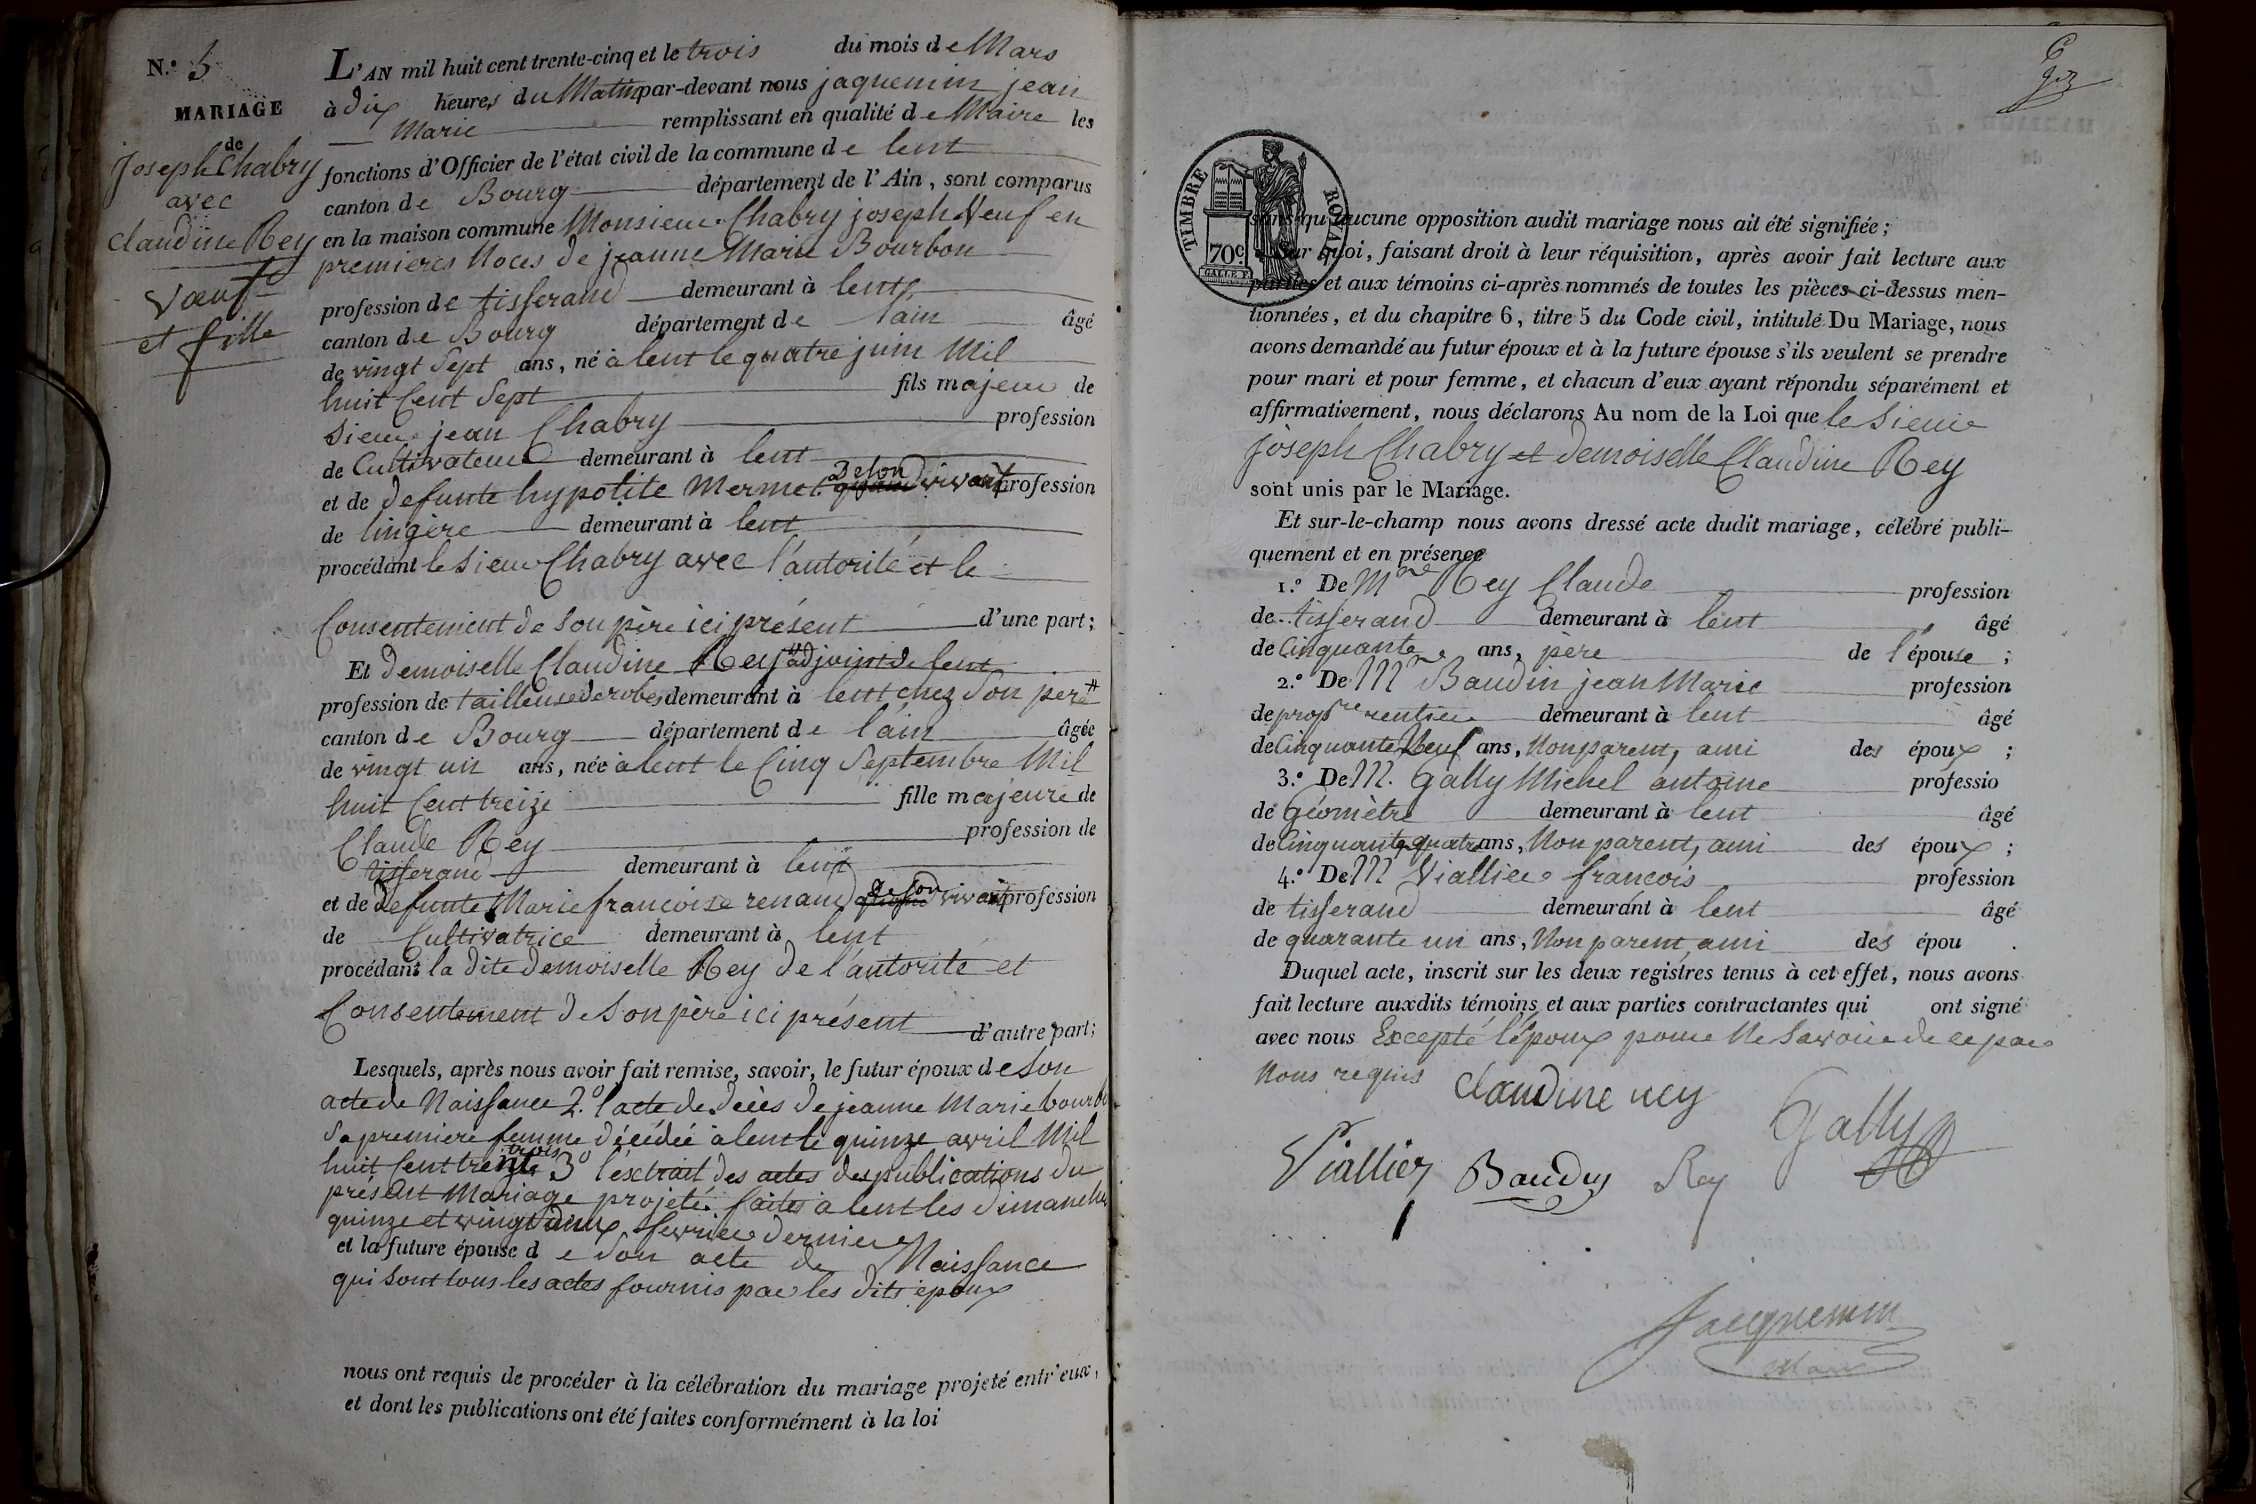 N.º 5
MARIAGE
de
Joseph Chabry
avec
Claudine Rey
Vœuf
et fille
L'AN mil huit cent trente-cinq et le trois du mois de Mars
à dix heures du Matin par-devant nous jaquemin jean
Marie remplissant en qualité de Maire les
fonctions d'Officier de l'état civil de la commune de lent
canton de Bourg département de l'Ain, sont comparus
en la maison commune Monsieur Chabry joseph Veuf en
premieres Noces de jeanne Marie Bourbon
profession de tisserand demeurant à lent,
canton de Bourg département de l'ain âgé
de vingt sept ans, né à lent le quatre juin Mil
huit Cent Sept fils majeur de
Sieur jean Chabry profession
de Cultivateur demeurant à lent
et de defunte hypolite Mermet de son vivant profession
de lingère demeurant à lent
procédant le Sieur Chabry avec l'autorité et le
Consentement de Son père ici présent d'une part;
Et Demoiselle Claudine Rey adjoint de lent
profession de tailleuse de robes demeurant à lent chez Son père #
canton de Bourg département de l'ain âgée
de vingt un ans, née à lent le Cinq Septembre Mil
huit Cent treize fille majeure de
Claude Rey profession de
tisserand demeurant à lent
et de defunte Marie françoise renaud de son vivant profession
de Cultivatrice demeurant à lent
procédant la dite Demoiselle Rey de l'autorité et
Consentement de Son père ici présent d'autre part;
Lesquels, après nous avoir fait remise, savoir, le futur époux de Son
acte de Naissance 2.º l'acte de décès de jeanne Marie bourbon
Sa premiere femme décédée à lent le quinze avril Mil
huit Cent trente trois 3º l'extrait des actes de publications du
présent Mariage projeté faites à lent les dimanches
quinze et vingt deux fevrier dernier
et la future épouse de Son acte de Naissance
qui Sont tous les actes fournis par les dits époux
nous ont requis de procéder à la célébration du mariage projeté entr'eux,
et dont les publications ont été faites conformément à la loi
6
TIMBRE ROYAL
70 c.
sans qu'aucune opposition audit mariage nous ait été signifiée;
Sur quoi, faisant droit à leur réquisition, après avoir fait lecture aux
parties et aux témoins ci-après nommés de toutes les pièces ci-dessus men-
tionnées, et du chapitre 6, titre 5 du Code civil, intitulé Du Mariage, nous
avons demandé au futur époux et à la future épouse s'ils veulent se prendre
pour mari et pour femme, et chacun d'eux ayant répondu séparément et
affirmativement, nous déclarons Au nom de la Loi que le Sieur
Joseph Chabry et Demoiselle Claudine Rey
sont unis par le Mariage.
Et sur-le-champ nous avons dressé acte dudit mariage, célébré publi-
quement et en présence
1.º De M Rey Claude profession
de tisserand demeurant à lent âgé
de Cinquante ans, père de l'épouse;
2.º De M Baudin jean Marie profession
de prop.re rentier demeurant à lent âgé
de Cinquante Neuf ans, Non parent, ami des époux;
3.º De M. Gally Michel antoine professio
de Géomètre demeurant à lent âgé
de Cinquante quatre ans, Non parent, ami des époux;
4.º De M Viallier françois profession
de tisserand demeurant à lent âgé
de quarante un ans, Non parent, ami des épou.
Duquel acte, inscrit sur les deux registres tenus à cet effet, nous avons
fait lecture auxdits témoins et aux parties contractantes qui ont signé
avec nous Excepté l'époux pour Ne Savoir de ce par
Nous requis
Claudine rey
Gally
Viallier Baudin Rey
Jacquemin
Maire